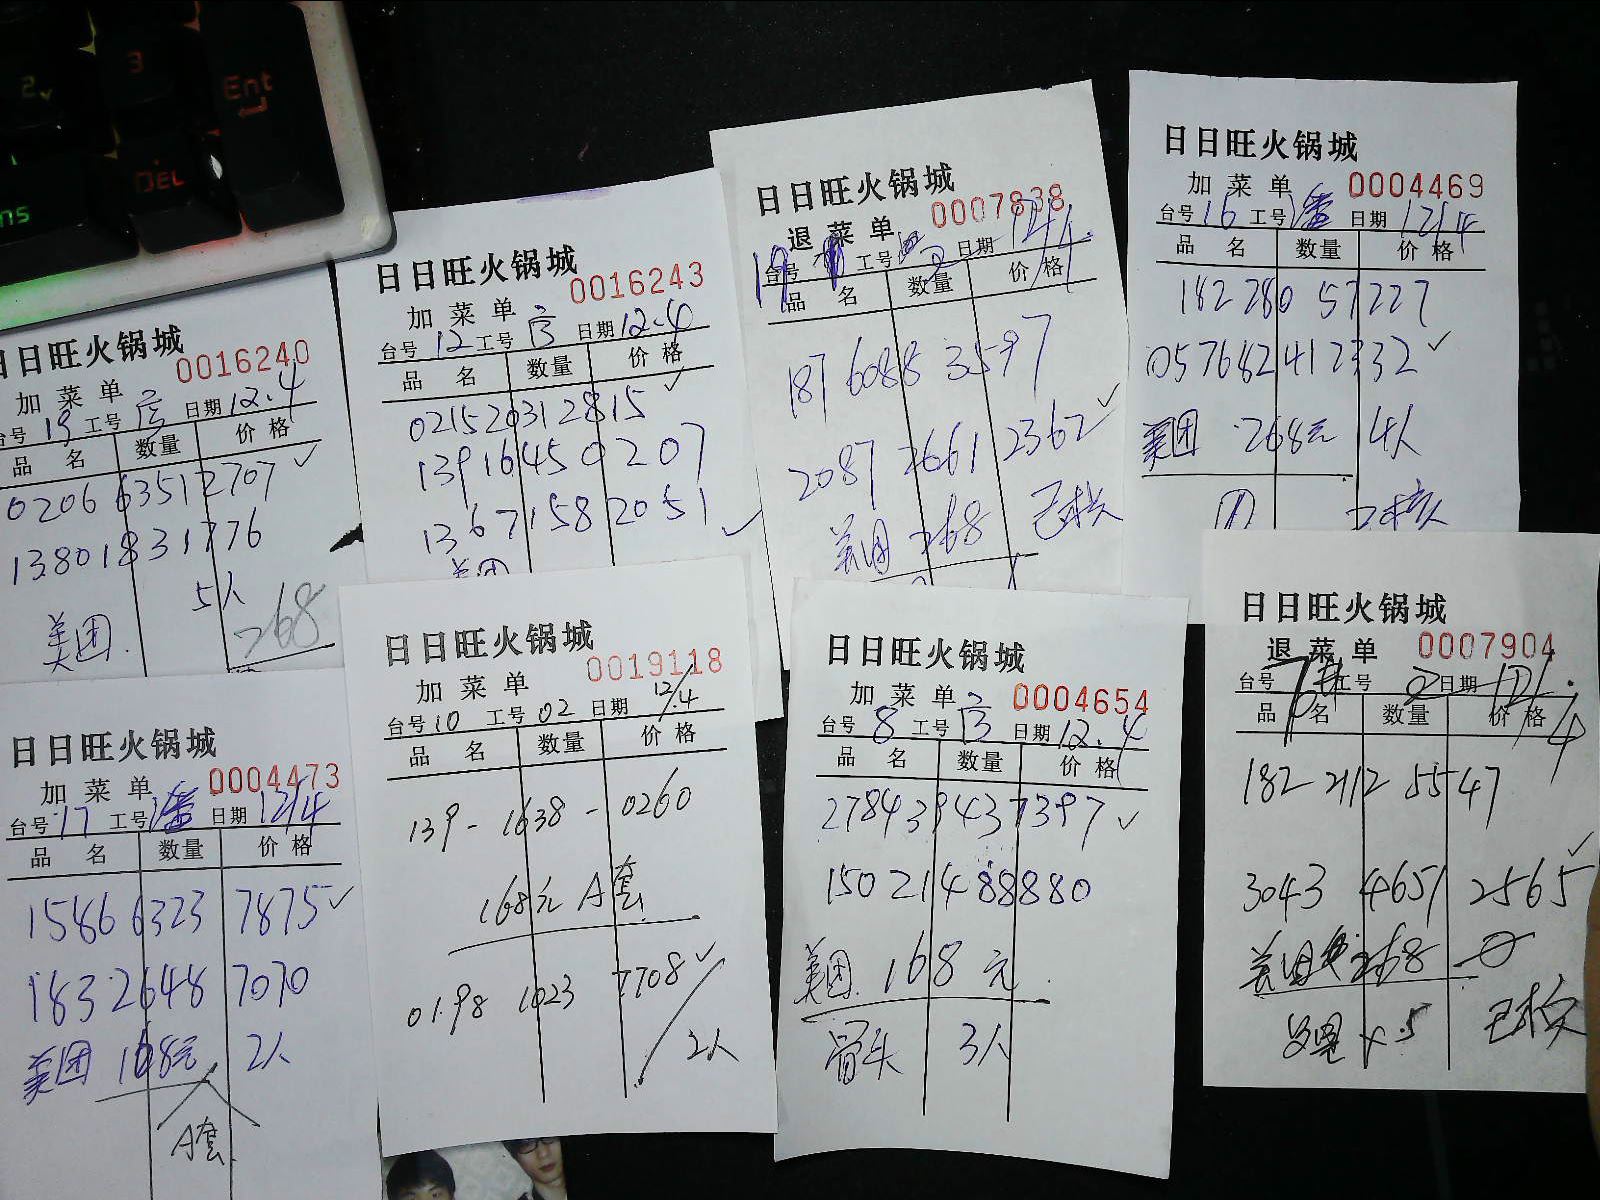 2
3
Ent
DEL
ns
日日旺火锅城
加菜单 0016240
台号 19 工号 彦 日期 12.4
品名 数量 价格
0206 6351 2707 ✓
13801831776
5人
美团. 268
日日旺火锅城
加菜单 0016243
台号 12 工号 日期 12.4
品名 数量 价格
021520312815 ✓
13916450207
13671582051 ✓
美团
日日旺火锅城
退菜单 0007838
台号 19 工号 日期 12.4.
品名 数量 价格
187 6088 3597
2087 2661 2362 ✓
美团 268 已核
日日旺火锅城
加菜单 0004469
台号 16 工号 潘 日期 12/4
品名 数量 价格
182 280 57227
057682412332 ✓
美团 268元 4人
已核
日日旺火锅城
加菜单 0004473
台号 17 工号 潘 日期 12/4
品名 数量 价格
1586 6323 7875 ✓
183 2648 7070
美团 168元 2人
A套
日日旺火锅城
加菜单 0019118
台号 10 工号 02 日期 12/.4
品名 数量 价格
139-1638-0260
168元 A套
0198 1023 7708 ✓
2人
日日旺火锅城
加菜单 0004654
台号 8 工号 日期 12.4
品名 数量 价格
278439437397 ✓
150 214 88880
美团. 168元.
骨头 3人
日日旺火锅城
退菜单 0007904
台号 7# 工号 2 日期 12/.4
品名 数量 价格
182 2112 5547
3043 4651 2565 ✓
美团 268
x5 已核